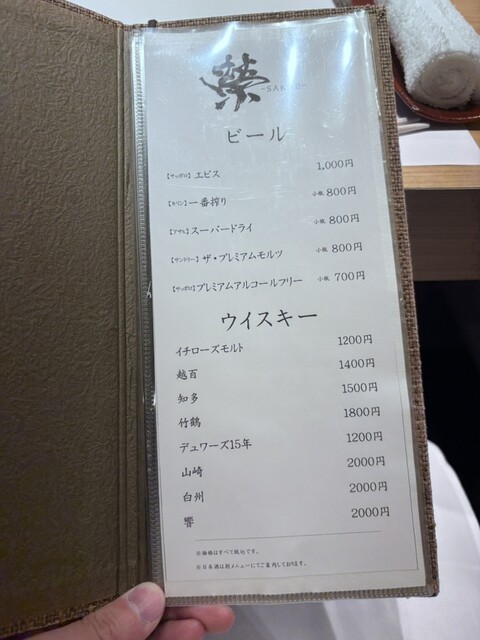 榮
ビール
【サッポロ】エビス 1,000円
【キリン】一番搾り 小瓶 800円
【アサヒ】スーパードライ 小瓶 800円
【サントリー】ザ・プレミアムモルツ 小瓶 800円
【サッポロ】プレミアムアルコールフリー 小瓶 700円
ウイスキー
イチローズモルト 1200円
越百 1400円
知多 1500円
竹鶴 1800円
デュワーズ15年 1200円
山崎 2000円
白州 2000円
響 2000円
※価格はすべて税込です。
※日本酒は別メニューにてご案内しております。